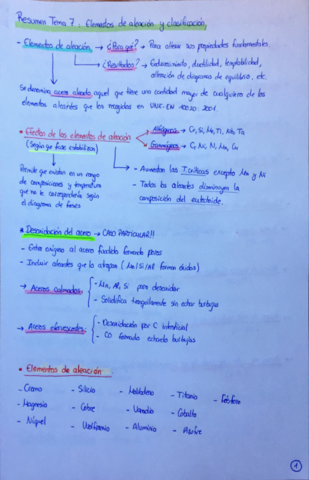 Resumen Tema 7: Elementos de aleación y clasificación
- Elementos de aleación → ¿Para qué? → Para alterar sus propiedades fundamentales.
→ ¿Resultados? → Endurecimiento, ductilidad, templabilidad,
alteración de diagrama de equilibrio, etc.
Se denomina acero aleado aquel que tiene una cantidad mayor de cualquiera de los
elementos aleantes que los recogidos en UNE-EN 10020:2001.
• Efectos de los elementos de aleación → Alfágenos → Cr, Si, Mo, Ti, Nb, Ta
(Según que fase estabilizan) → Gammágenos → C, Ni, N, Mn, Cu
Permite que existan en un rango
de composiciones y temperatura
que no le correspondería según
el diagrama de fases
- Aumentan las T críticas excepto Mn y Ni
- Todos los aleantes disminuyen la
composición del eutectoide.
• Desoxidación del acero → CASO PARTICULAR!!
- Entra oxígeno al acero fundido formando poros
- Incluir aleantes que lo atrapan (Mn/Si/Al forman óxidos)
→ Aceros calmados: - Mn, Al, Si para desoxidar
- Solidifica tranquilamente sin estar burbujas
→ Aceros efervescentes: - Desoxidación por C intersticial
- CO formado estando burbujas
• Elementos de aleación
- Cromo - Silicio - Molibdeno - Titanio - Fósforo
- Magnesio - Cobre - Vanadio - Cobalto
- Níquel - Wolframio - Aluminio - Azufre
1